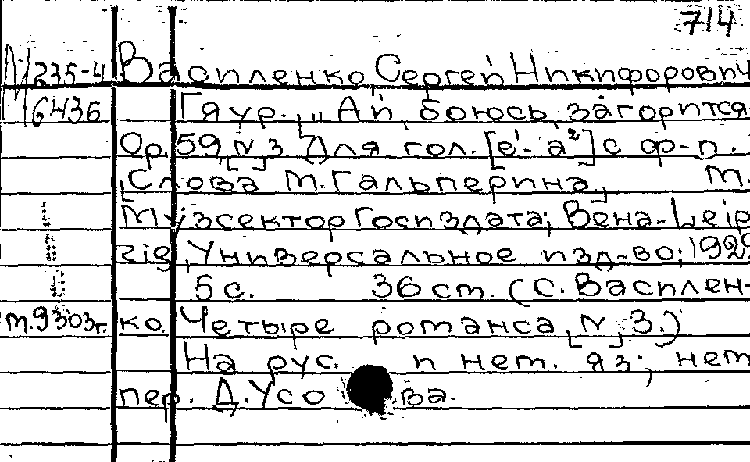 714
М 235-4 Василенко, Сергей Никифорович
643б Гяур. „Ай, боюсь, загорится
Ор. 59, [№] 3. Для гол. [e¹-a²] с ф-п.
[Слова М. Гальперина.] М.
Музсектор Госиздата; Вена-Leip
zig, Универсальное изд-во; 1929
5 с. 36 cm. (С. Василен-
т. 9303г. ко. Четыре романса, [№] 3.)
На рус. и нем. яз; нем
пер. Д. Усова.